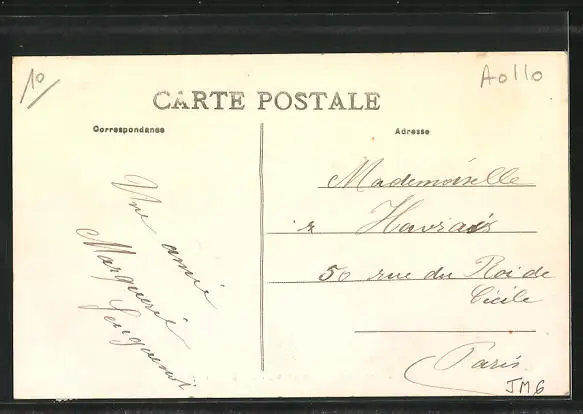 10
Aollo
CARTE POSTALE
Correspondanse
Adresse
Une amie
Marguerite
Mademoiselle
Havrais
50 rue du Roi de
Cicile
Paris
JM6